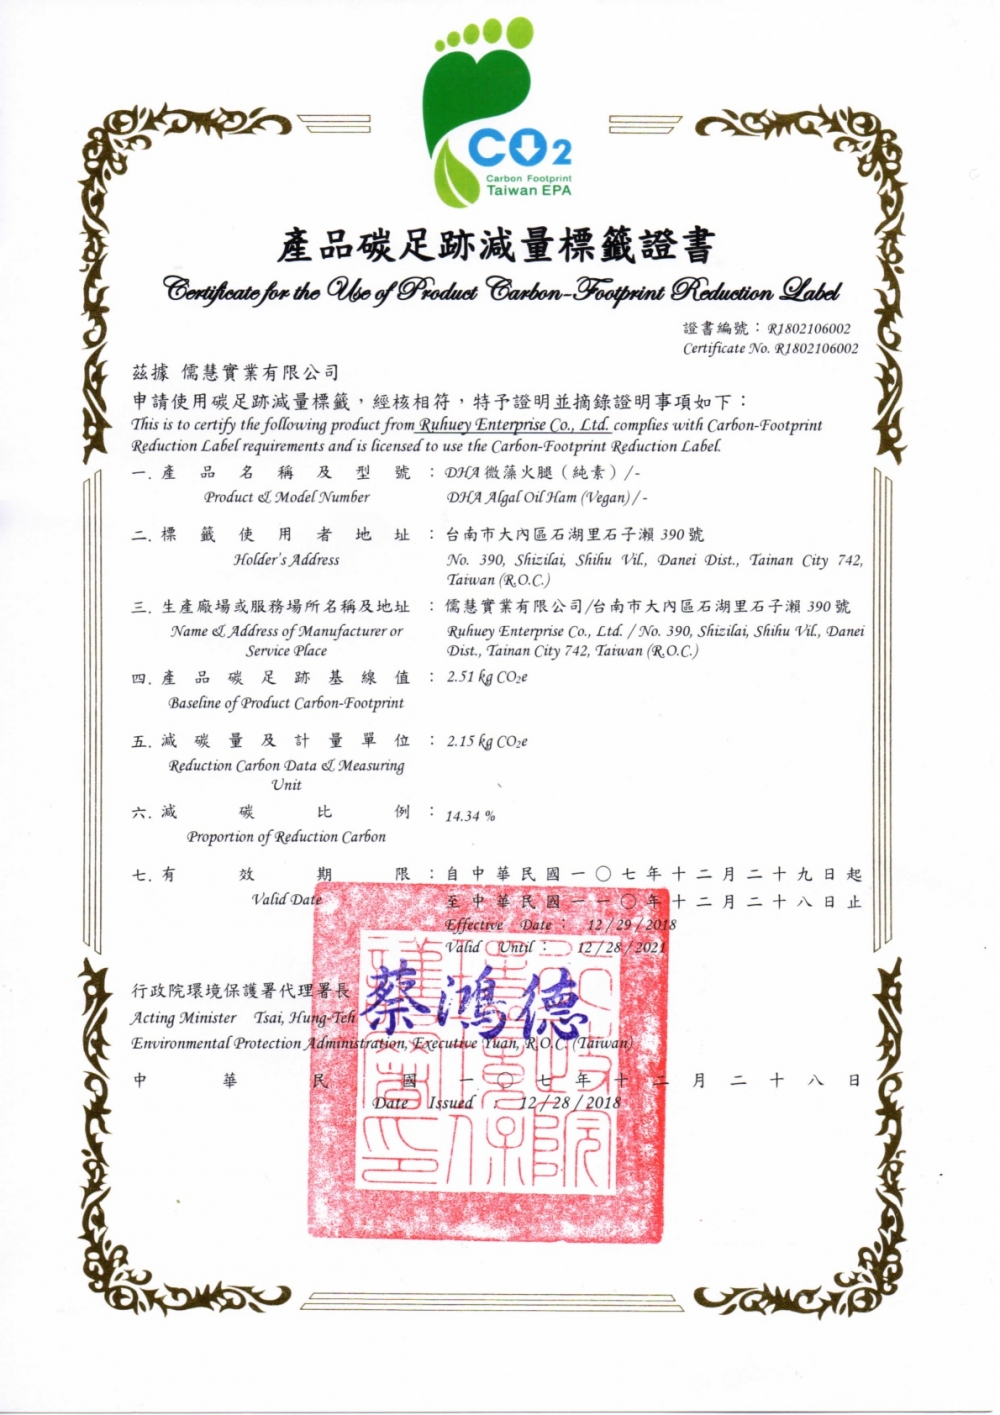 CO2
Carbon Footprint
Taiwan EPA
產品碳足跡減量標籤證書
Certificate for the Use of Product Carbon-Footprint Reduction Label
證書編號：R1802106002
Certificate No. R1802106002
茲據 儒慧實業有限公司
申請使用碳足跡減量標籤，經核相符，特予證明並摘錄證明事項如下：
This is to certify the following product from Ruhuey Enterprise Co., Ltd. complies with Carbon-Footprint
Reduction Label requirements and is licensed to use the Carbon-Footprint Reduction Label.
一. 產品名稱及型號：DHA微藻火腿（純素）/-
Product & Model Number DHA Algal Oil Ham (Vegan) / -
二. 標籤使用者地址：台南市大內區石湖里石子瀨 390 號
Holder's Address No. 390, Shizilai, Shihu Vil., Danei Dist., Tainan City 742,
Taiwan (R.O.C.)
三. 生產廠場或服務場所名稱及地址：儒慧實業有限公司/台南市大內區石湖里石子瀨 390 號
Name & Address of Manufacturer or Ruhuey Enterprise Co., Ltd. / No. 390, Shizilai, Shihu Vil., Danei
Service Place Dist., Tainan City 742, Taiwan (R.O.C.)
四. 產品碳足跡基線值：2.51 kg CO2e
Baseline of Product Carbon-Footprint
五. 減碳量及計量單位：2.15 kg CO2e
Reduction Carbon Data & Measuring
Unit
六. 減碳比例：14.34 %
Proportion of Reduction Carbon
七. 有效期限：自中華民國一〇七年十二月二十九日起
Valid Date 至中華民國一一〇年十二月二十八日止
Effective Date： 12 / 29 / 2018
Valid Until： 12 / 28 / 2021
行政院環境保護署代理署長 蔡鴻德
Acting Minister Tsai, Hung-Teh
Environmental Protection Administration, Executive Yuan, R.O.C. (Taiwan)
中華民國一〇七年十二月二十八日
Date Issued : 12 / 28 / 2018
行政院環境保護署印